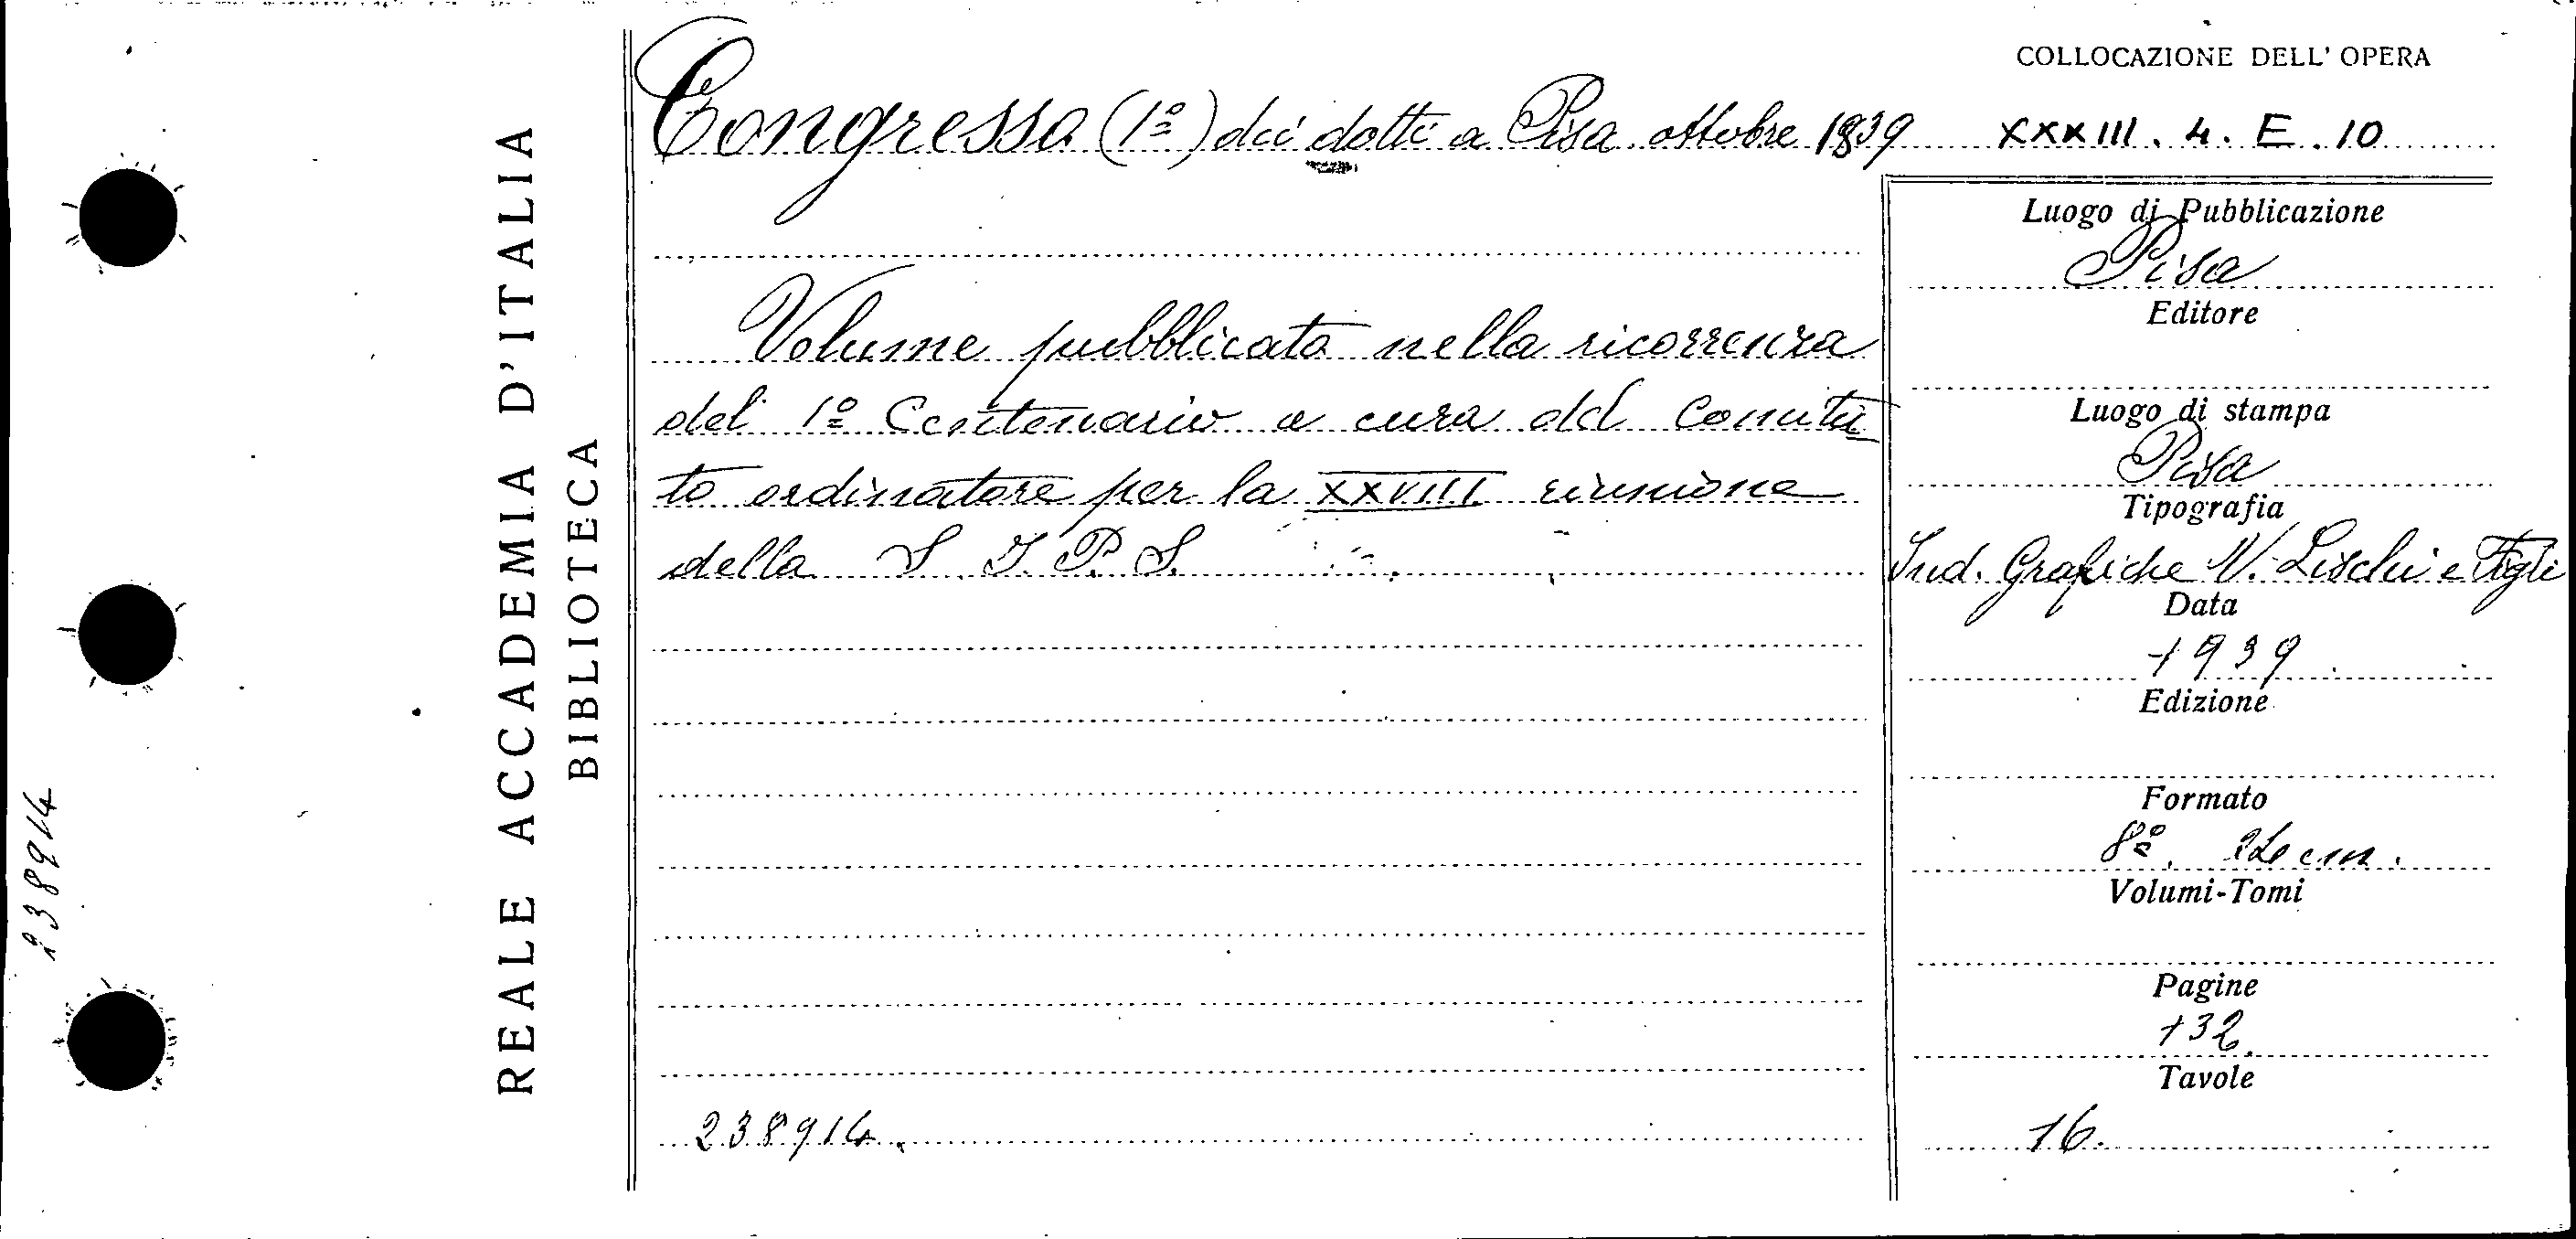 COLLOCAZIONE DELL' OPERA
Congresso (1º) dei dotti a Pisa ottobre 1839
XXXIII. 4. E. 10
Volume pubblicato nella ricorrenza
del 1º Centenario a cura del Comita
to ordinatore per la XXVIII riunione
della S. I. P. S.
238914.
Luogo di Pubblicazione
Pisa
Editore
Luogo di stampa
Pisa
Tipografia
Ind. Grafiche V. Lischi e Figli
Data
1939
Edizione
Formato
8º. cm.
Volumi-Tomi
Pagine
132
Tavole
16.
REALE ACCADEMIA D'ITALIA
BIBLIOTECA
238914